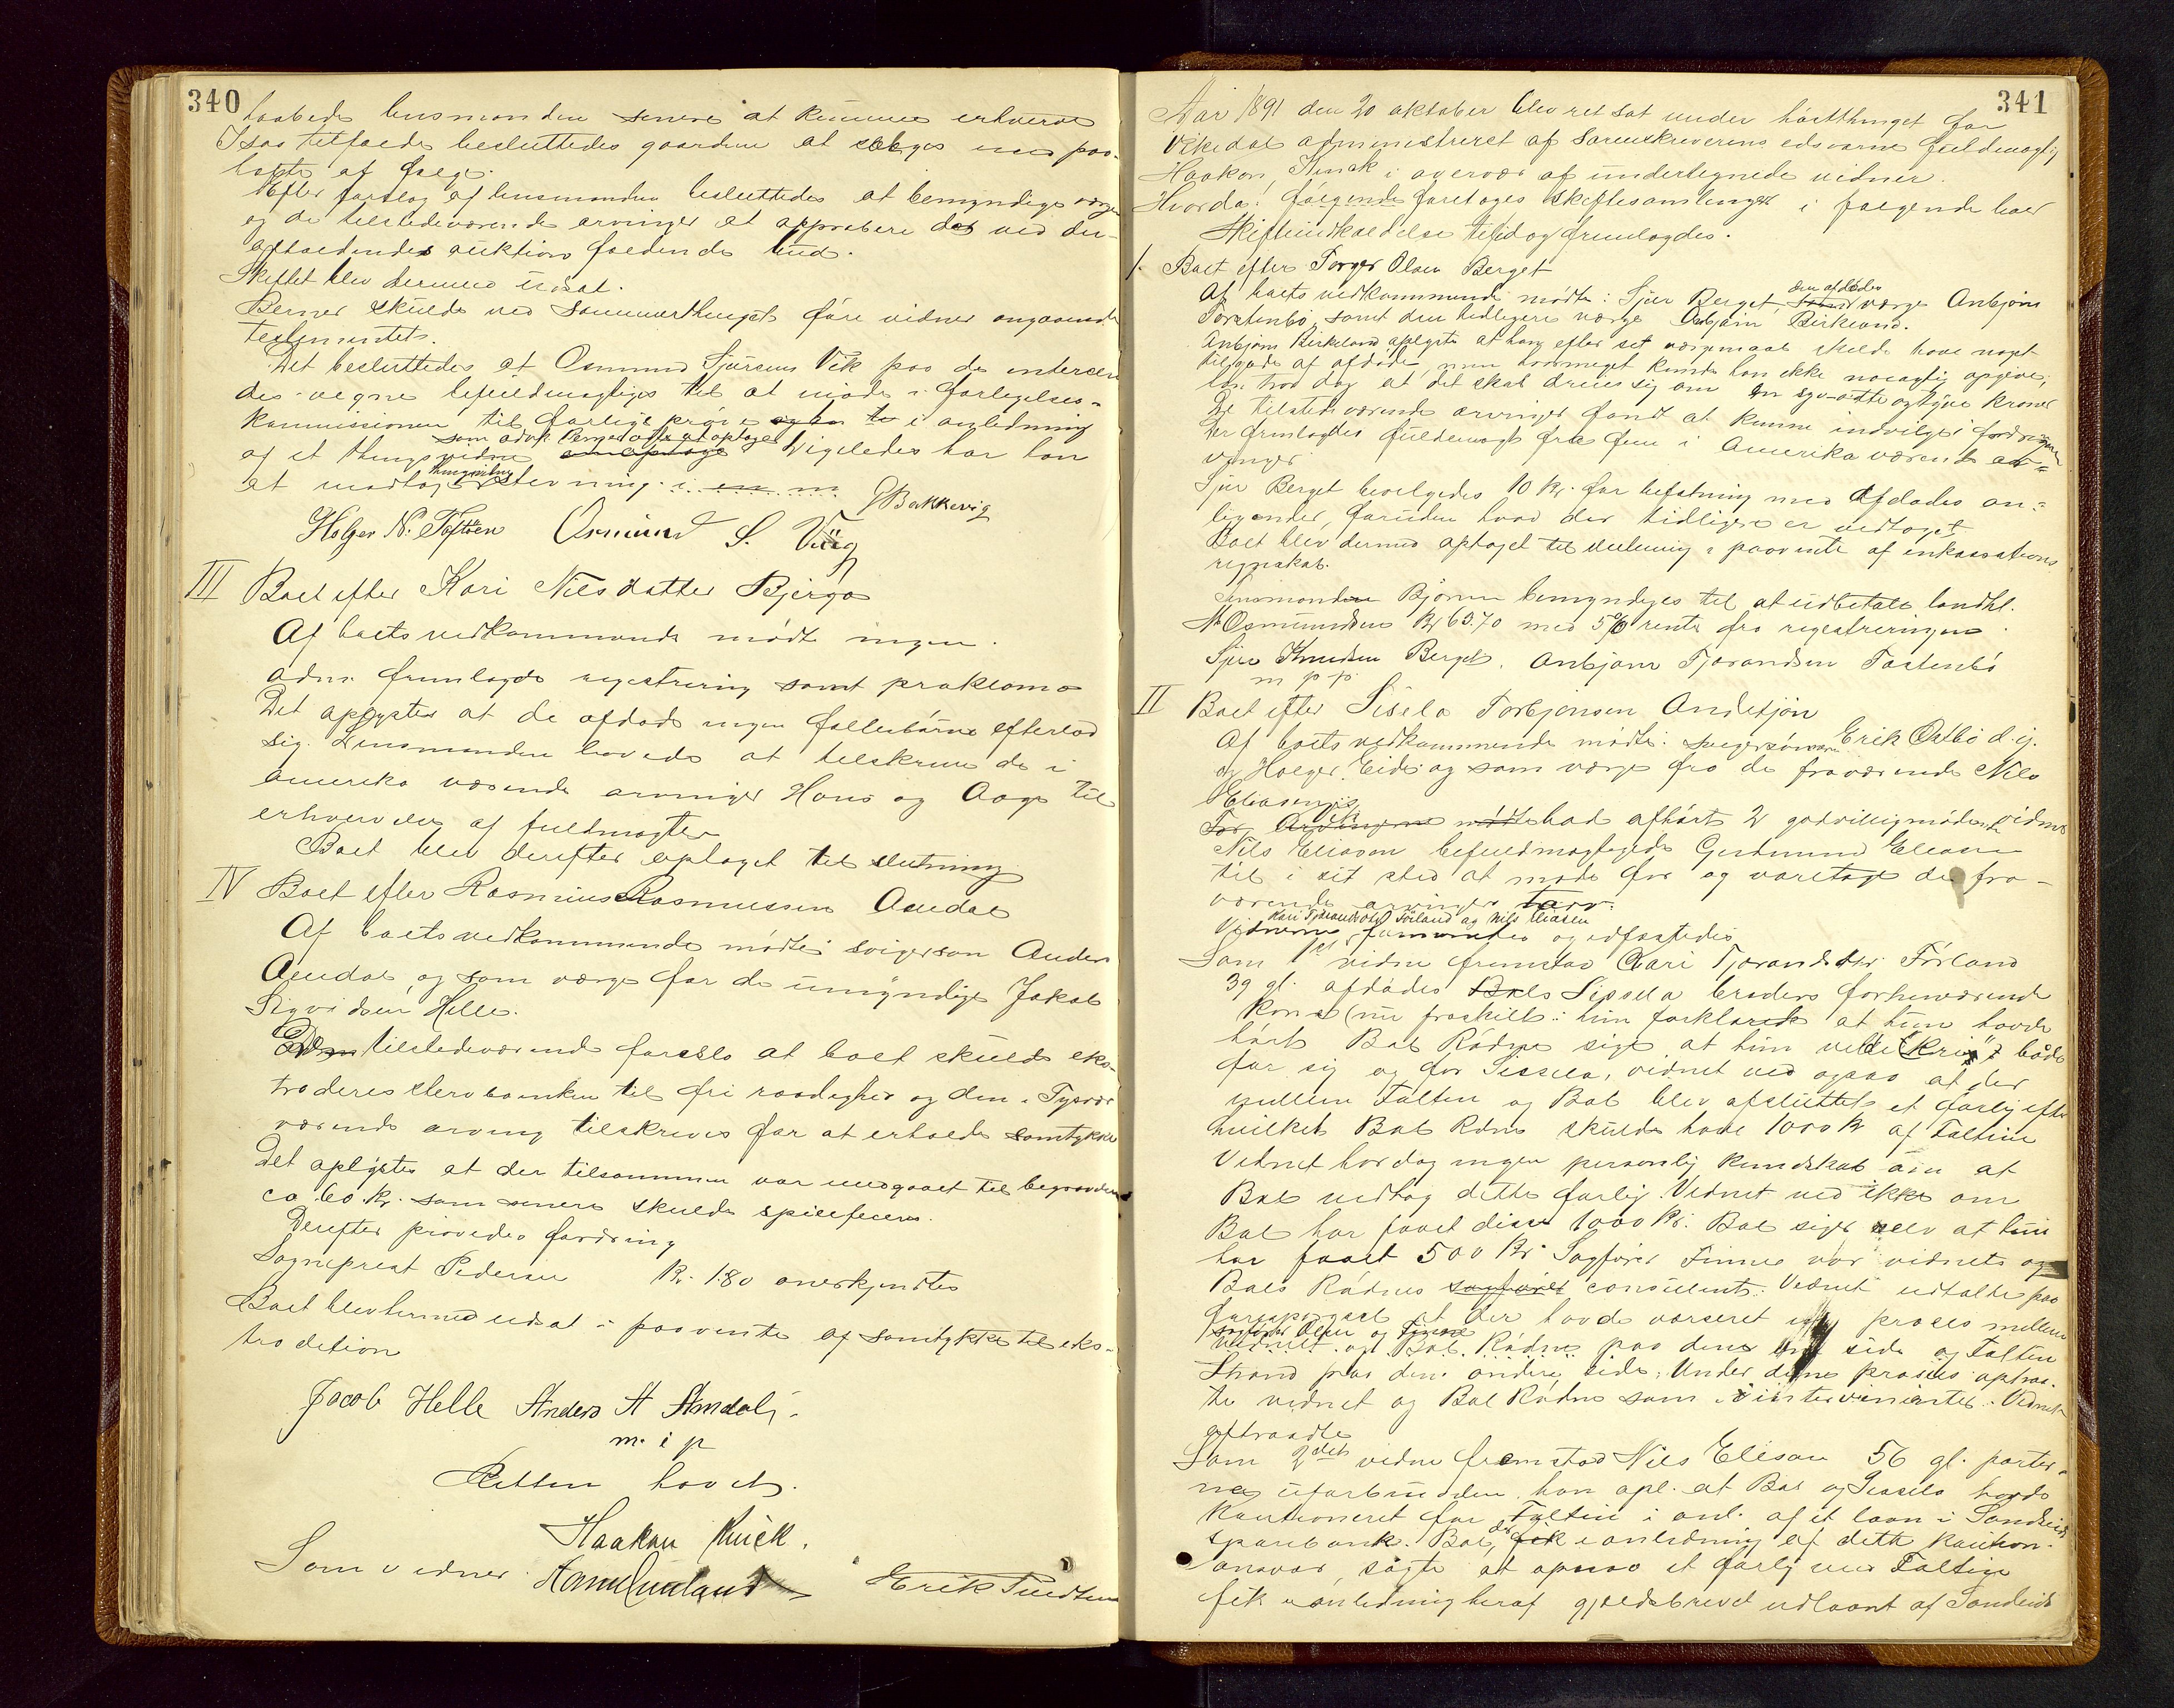 340
haabede lensmanden senere at kunne erhverve
I saa tilfælde besluttedes gaarden at sælges med paa-
hefte af følge.
Efter forslag af lensmanden besluttedes at bemyndige værgen
og de tilstedeværende arvinger at approbere det ved den
afholdendes auktion faldende bud.
Skiftet blev dermed udsat.
Berner skulde ved sommerthinget føre vidner angaaende
testamentet.
Det besluttedes at Osmund Sjursens Vik paa de interesse
des vegne befuldmægtiges til at møde i forlegelses-
kommissionen til forligsprøve i anledning
som advk. Berner at optages
af et thingsvidne Ligeledes har han
at modtage thingsvidne stevning i
G Bakkevig
Holger N. Toftøen Osmund S. Viig
III Boet efter Kari Nilsdatter Bjerga
Af boets vedkommende mødte ingen.
Adm. fremlagde registrering samt proklama
Det oplystes at de afdøde ingen fællesbørn efterlod
sig. Lensmanden lovede at tilskrive de i
Amerika værende arvinger Hans og Aage til
erhvervelse af fuldmagter
Boet blev derefter optaget til slutning
IV Boet efter Rasmus Rasmussen Amdal
Af boets vedkommende mødte: svigersøn Anders
Amdal og som værge for de umyndige Jakob
Sigvidsen Helle.
De tilstedeværende foreslo at boet skulde eks-
traderes sterboenken til fri raadighed og den i Tysvær
værende arving tilskrives for at erholde samtykke
Det oplystes at der tilsammen var medgaaet til begravelsen
ca 60 Kr. som senere skulde spesificeres.
Derefter prøvedes fordring
Sogneprest Pedersen Kr. 1.80 anerkjendtes
Boet blev hermed udsat i paavente af samtykke til eks-
tradition
Jacob Helle Anders A Amdal
m. i p
Retten hævet.
Haakon Knick.
Som vidner: Erik Tuedtsen
341
Aar 1891 den 20 oktober blev ret sat under høstthinget for
Vikedal administreret af sorenskriverens edsvorne fuldmægtig
Haakon Kinck i overvær af undertegnede vidner.
Hvorda: følgende foretoges skiftesamlinger i følgende boer
Skifteindkaldelse til idag fremlagdes.
1. Boet efter Torger Olsen Berget
Af boets vedkommende mødte: Sjur Berget, den afdødes værge Anbjørn
Tostenbø, samt den tidligere værge Anbjørn Birkeland.
Anbjørn Birkeland oplyste at han efter sit værgemaal skulde have noget
tilgode af afdøde, men hvormeget kunde han ikke nøiagtig opgive,
han trod dog at det skal dreie sig om en syv-otte og tyve kroner
De tilstedeværende arvinger fandt at kunne indvilge i fordringen
Der fremlagdes fuldmagt fra fem i Amerika værende ar-
vinger
Sjur Berget bevilgedes 10 Kr. for befatning med Afdødes an-
liggender, foruden hvad der tidligere er vedtaget
Boet blev dermed optaget til slutning i paavente af inkassations
regnskab.
Lensmanden Bjørnsen bemyndiges til at udbetale landhl.
N. Osmundsen Kr 65.70 med 5% rente fra registreringen
Sjur Knudsen Berget. Anbjørn Tjorandsen Tostenbø
m p p
II Boet efter Sisela Torbjonsen Andetjøn
Af boets vedkommende mødte: svigersønnen Erik Østbø d. y.
og Holger Eide og som værge fra de fraværende Nils
Eliasen Vik
For Arvingerne mødte bad afhørt 2 godvilligmødende vidner
Nils Eliason befuldmægtigede Gudmund Eliasen
til i sit sted at møde for og varetage de fra-
værende arvingers tarv.
Kari Tjorandsdtr Førland og Nils Eliasen
Vidnerne formantes og edfæstedes
Som 1st vidne fremstod Kari Tjorandsdtr. Førland
39 gl. afdødes Sissela broders forhenværende
kone (nu fraskilt: hun forklarede at hun havde
hørt Bol Rødne sige at hun vilde "krie" både
for sig og for Sissela, vidnet ved ogsaa at der
mellem Foltin og Bol blev afsluttet et forlig efter
hvilket Bol Rdne skulde have 1000 Kr af Foltine
Vidnet har dog ingen personlig kundskab om at
Bol vedtog dette forlig. Vidnet ved ikke om
Bol har faaet disse 1000 Kr. Bol siger selv at hun
har faaet 500 Kr. Sagfører Finne var vidnets og
Bols Rødnes sagfører consulent. Vidnet udtalte paa
forespørgsel at der havde værseret en proces mellem
vidnet og Bol Rødne paa den ene side og Foltin
Strand paa den anden side. Under denne proces optraa-
te vidnet og Bol Rødne som intervenienter. Vidnet
aftraadte
Som 2det vidne fremstod Nils Elison 56 gl. parter-
ne uforbunden, han opl. at Bol og Sissela havde
kautioneret for Foltin i anl. af et laan i Sandeids
sparebank. Bol, der i anledning af dette kaution-
ansvar, søgte at opnaa et forlig med Foltin
fik i anledning heraf gjældsbrevet udlaant af Sandeids